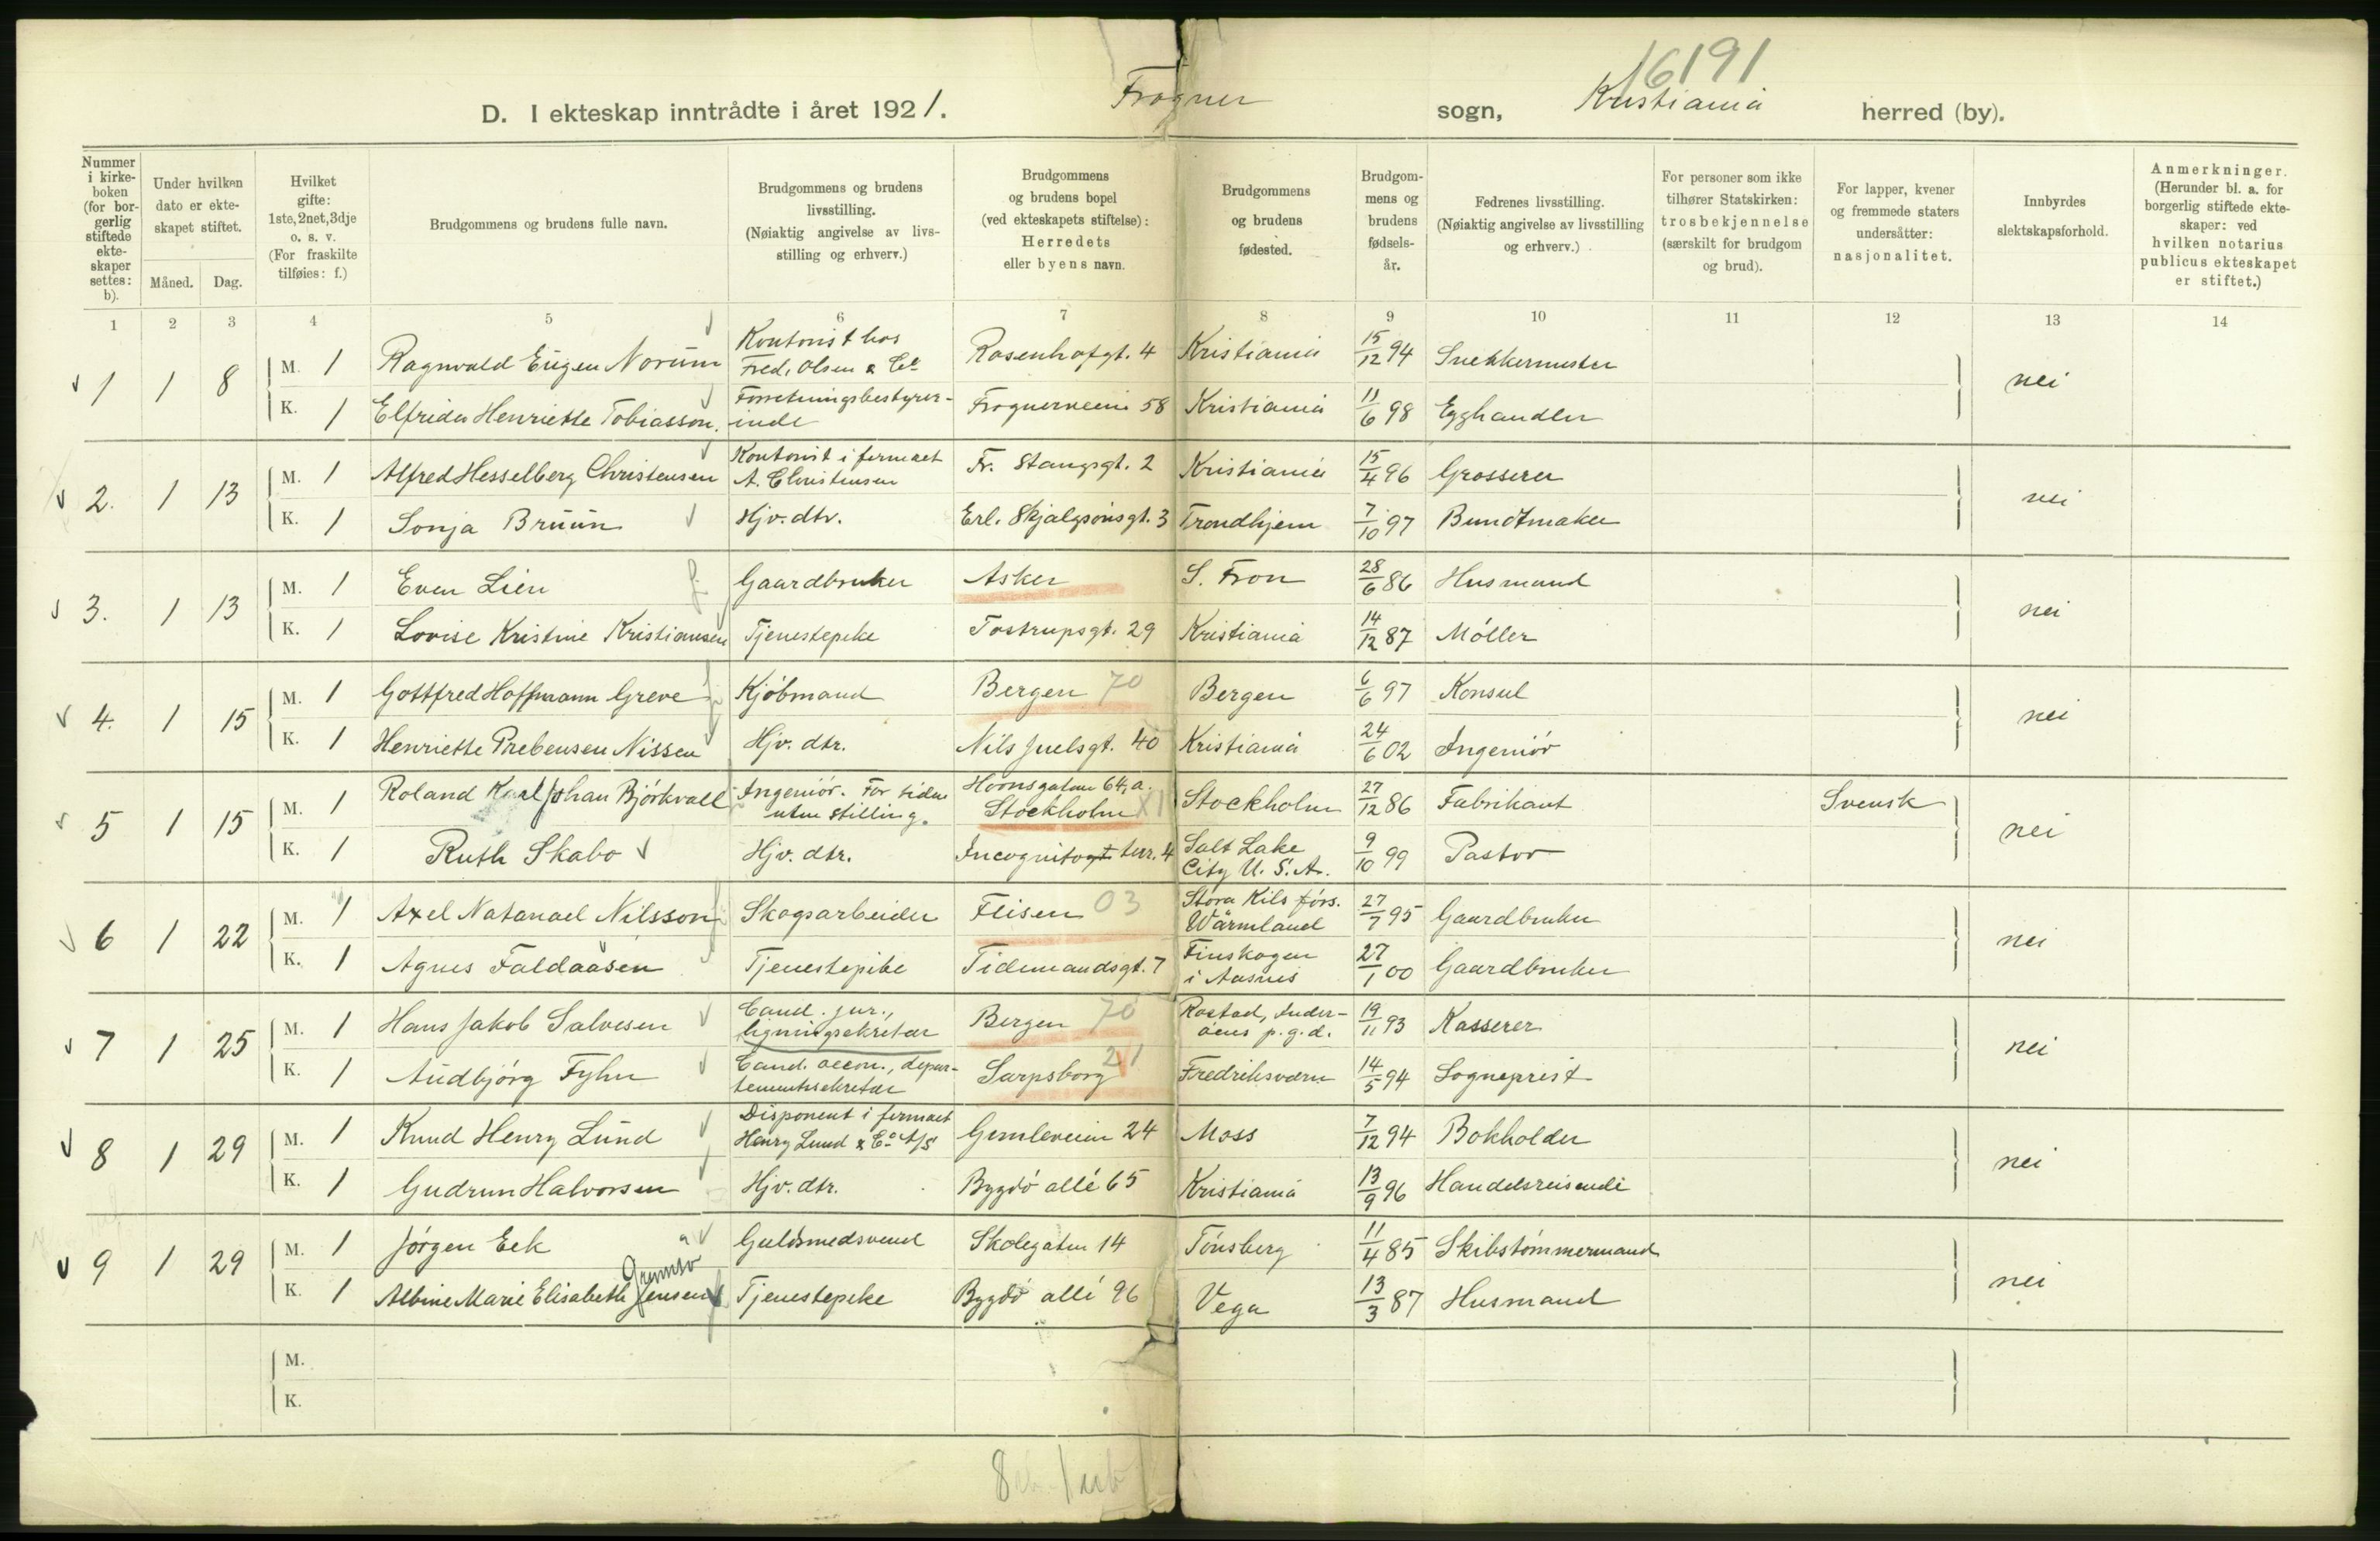 16191
D. I ekteskap inntrådte i året 1921. Frogner sogn, Kristiania herred (by).
Nummer i kirkeboken (for borgerlig stiftede ekteskaper settes: b).
Under hvilken dato er ekteskapet stiftet.
Måned. Dag.
Hvilket gifte: 1ste, 2net, 3dje o. s. v. (For fraskilte tilføies: f.)
Brudgommens og brudens fulle navn.
Brudgommens og brudens livsstilling. (Nøiaktig angivelse av livsstilling og erhverv.)
Brudgommens og brudens bopel (ved ekteskapets stiftelse): Herredets eller byens navn.
Brudgommens og brudens fødested.
Brudgommens og brudens fødselsår.
Fedrenes livsstilling. (Nøiaktig angivelse av livsstilling og erhverv.)
For personer som ikke tilhører Statskirken: trosbekjennelse (særskilt for brudgom og brud).
For lapper, kvener og fremmede staters undersåtter: nasjonalitet.
Innbyrdes slektskapsforhold.
Anmerkninger. (Herunder bl. a. for borgerlig stiftede ekteskaper: ved hvilken notarius publicus ekteskapet er stiftet.)
1 2 3 4 5 6 7 8 9 10 11 12 13 14
1 1 8 M. 1 Ragnvald Eugen Norum Kontorist hos Fred. Olsen & Co Rosenhofgt. 4 Kristiania 15/12 94 Snekkermester nei
K. 1 Elfrida Henriette Tobiasson. Forretningsbestyrerinde Frognerveien 58 Kristiania 11/6 98 Egghandler
2. 1 13 M. 1 Alfred Hesselberg Christensen Kontorist i firmaet A. Christensen Fr. Stangsgt. 2 Kristiania 15/4 96 Grosserer nei
K. 1 Sonja Bruun Hjv. dtr. Erl. Skjalgsønsgt. 3 Trondhjem 7/10 97 Bundtmaker
3. 1 13 M. 1 Even Lien Gaardbruker Asker S. Fron 28/6 86 Husmand nei
K. 1 Lovise Kristine Kristiansen Tjenestepike Tostrupsgt. 29 Kristiania 14/12 87 Møller
4. 1 15 M. 1 Gottfred Hoffmann Greve Kjøbmand Bergen 70 Bergen 6/6 97 Konsul nei
K. 1 Henriette Prebensen Nissen Hjv. dtr. Nils Juelsgt. 40 Kristiania 24/6 02 Ingeniør
5 1 15 M. 1 Roland Karl Johan Bjørkvall Ingeniør. For tiden uten stilling. Hornsgatan 64, a. Stockholm Stockholm 27/12 86 Fabrikant Svensk nei
K. 1 Ruth Skabo Hjv. dtr. Incognito ter. 4 Salt Lake City U. S. A. 9/10 99 Pastor
6 1 22 M. 1 Axel Natanael Nilsson Skogsarbeider Flisen 03 Stora Kils förs. Wärmland 27/7 95 Gaardbruker nei
K. 1 Agnes Faldaasen Tjenestepike Tidemandsgt. 7 Finskogen i Aasnes 27/1 00 Gaardbruker
7 1 25 M. 1 Hans Jakob Salvesen Cand. jur., ligningssekretær Bergen 70 Rostad, Inderøens p.g.d. 19/11 93 Kasserer nei
K. 1 Audbjørg Fyhn Cand. oecon., departementssekretær Sarpsborg 21 Fredriksværn 14/5 94 Sogneprest
8 1 29 M. 1 Knud Henry Lund Disponent i firmaet Henry Lund & Co A/S Gimleveien 24 Moss 7/12 94 Bokholder nei
K. 1 Gudrun Halvorsen Hjv. dtr. Bygdø allé 65 Kristiania 13/9 96 Handelsreisende
9 1 29 M. 1 Jørgen Eek Guldsmedsvend Skolegaten 14 Tønsberg 11/4 85 Skibstømmermand nei
K. 1 Albine Marie Elisabeth Jensen Tjenestepike Bygdø allé 96 Vega 13/3 87 Husmand
M.
K.